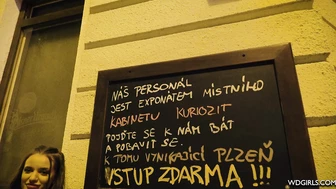 NÁŠ PERSONÁL
JEST EXPONÁTEM MÍSTNÍHO
KABINETU KURIOZIT
POJĎTE SE K NÁM BÁT
A POBAVIT SE.
K TOMU VZNIKAJÍCÍ PLZEŇ
VSTUP ZDARMA!!!
WDGIRLS.COM